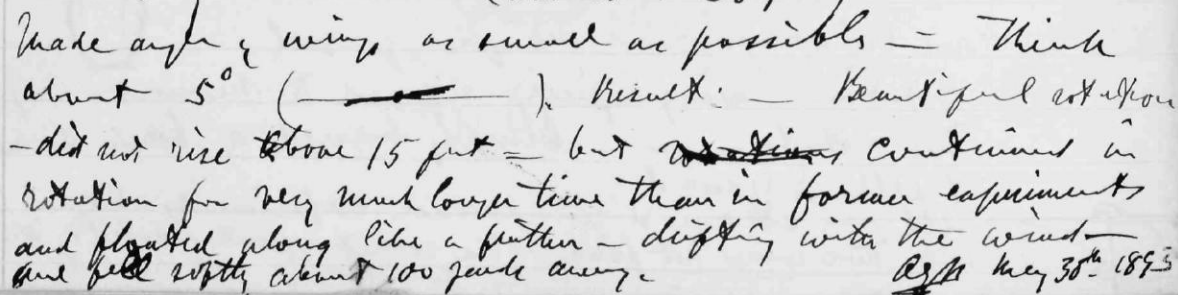 Made angle of wings as small as possible — Think
about 5° ( ). Result: — Beautiful rotation
— did not rise above 15 feet — but rotations continued in
rotation for very much longer time than in former experiments
and floated along like a — drifting with the wind —
and fell softly about 100 yards away. May 30th 1895